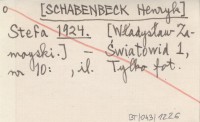 [SCHABENBECK Henryk]
Stefa 1924. [Władysław Za-
moyski.] – Światowid 1,
nr 10: , il. Tylko fot.
BJ/043/1226